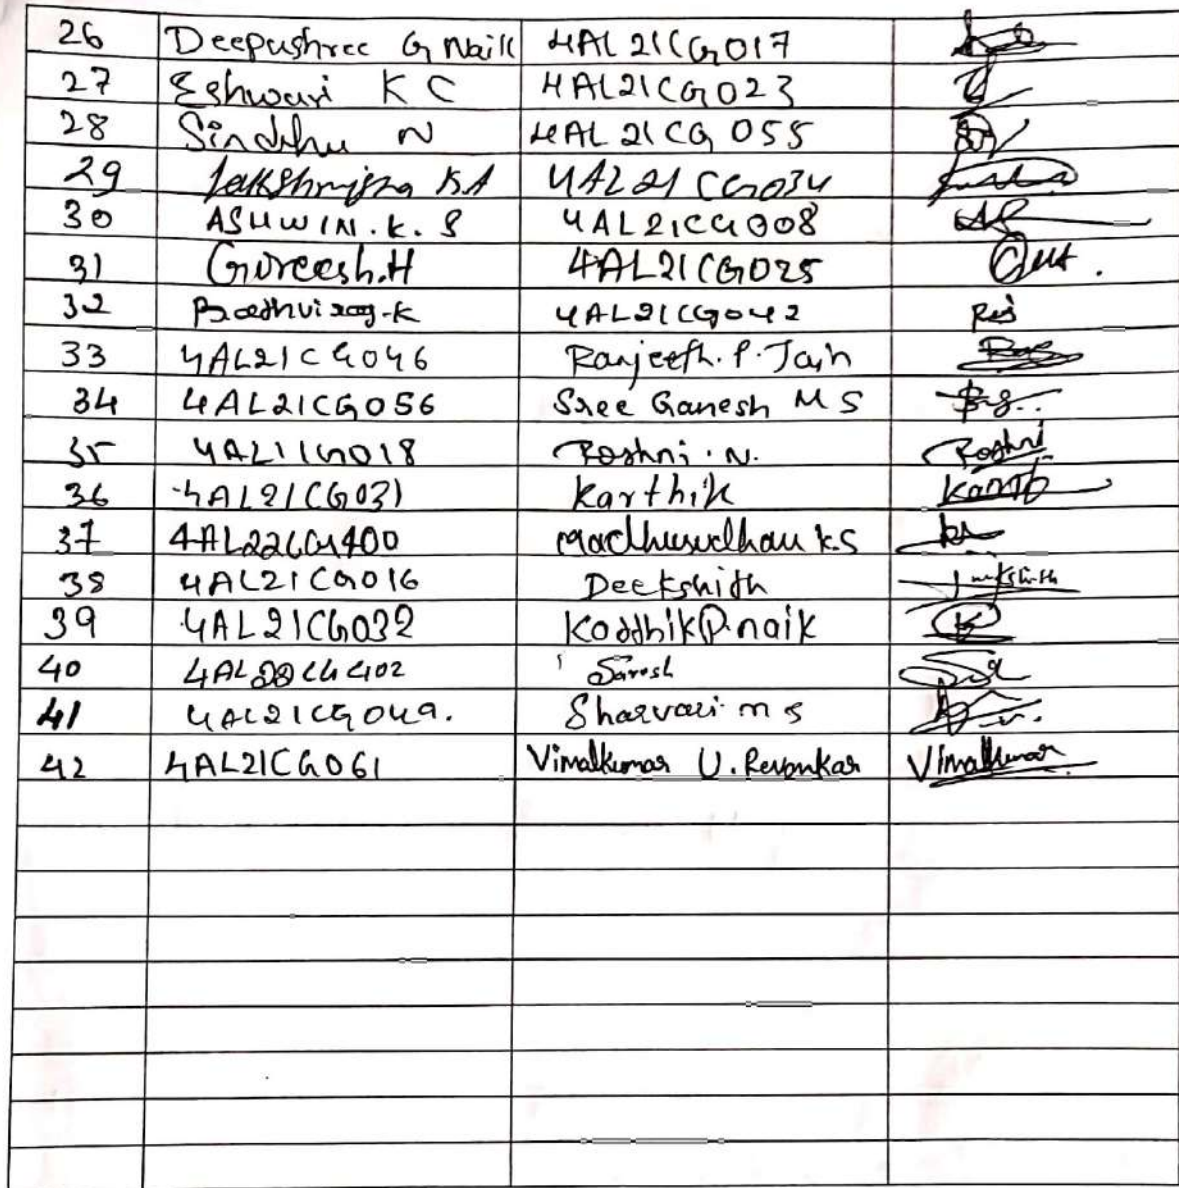 26 Deepashree G Naik 4AL21CG017
27 Eshwari K C 4AL21CG023
28 Sindhu N 4AL21CG055
29 K A 4AL21CG034
30 ASHWIN.K.S 4AL21CG008
31 Gureesh.H 4AL21CG025
32 4AL21CG042
33 4AL21CG046 Ranjeeth.P.Jain
34 4AL21CG056 Sree Ganesh M S
35 Roshni.N. Roshni
36 4AL21CG031 Karthik
37 4AL22CG400 K.S
38 4AL21CG016 Deekshith
39 4AL21CG032 P. naik
40
41 4AL21CG049. Sharvari m s
42 4AL21CG061 Vimalkumar U. Revankar Vimalkumar